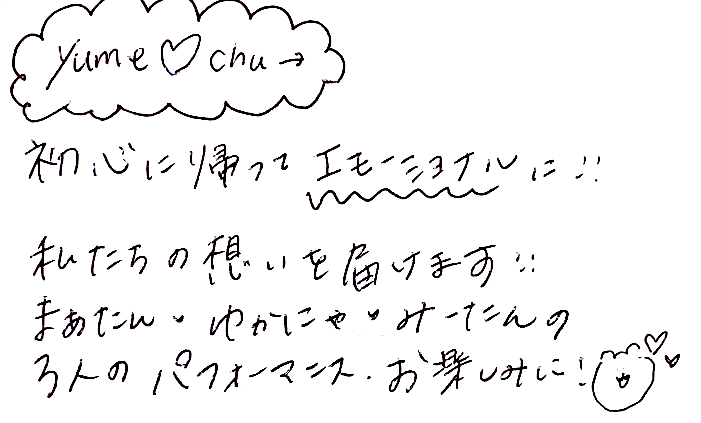 yume♡chu→
初心に帰って エモーショナルに!!
私たちの想いを届けます!!
まあたん・ゆかにゃ・みーたんの
3人のパフォーマンス、お楽しみに!